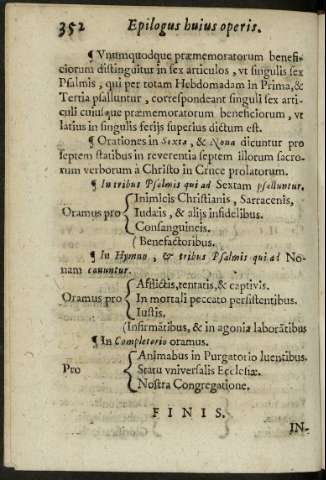 352 Epilogus huius operis.
¶ Vnumquodque præmemoratorum benefi-
ciorum distinguitur in sex articulos, vt singulis sex
Psalmis, qui per totam Hebdomadam in Prima, &
Tertia psalluntur, correspondeant singuli sex arti-
culi cuiusque præmemoratorum beneficiorum, vt
latius in singulis ferijs superius dictum est.
¶ Orationes in Sexta, & Nona dicuntur pro
septem statibus in reverentia septem illorum sacro-
rum verborum à Christo in Cruce prolatorum.
¶ In tribus Psalmis qui ad Sextam psalluntur.
Inimicis Christianis, Sarracenis,
Oramus pro Iudæis, & alijs infidelibus.
Consanguineis.
Benefactoribus.
¶ In Hymno, & tribus Psalmis qui ad No-
nam canuntur.
Afflictis, tentatis, & captivis.
Oramus pro In mortali peccato persistentibus.
Iustis.
Infirmātibus, & in agonia laborātibus
¶ In Completorio oramus.
Animabus in Purgatorio luentibus.
Pro Statu vniversalis Ecclesiæ.
Nostra Congregatione.
FINIS.
IN-